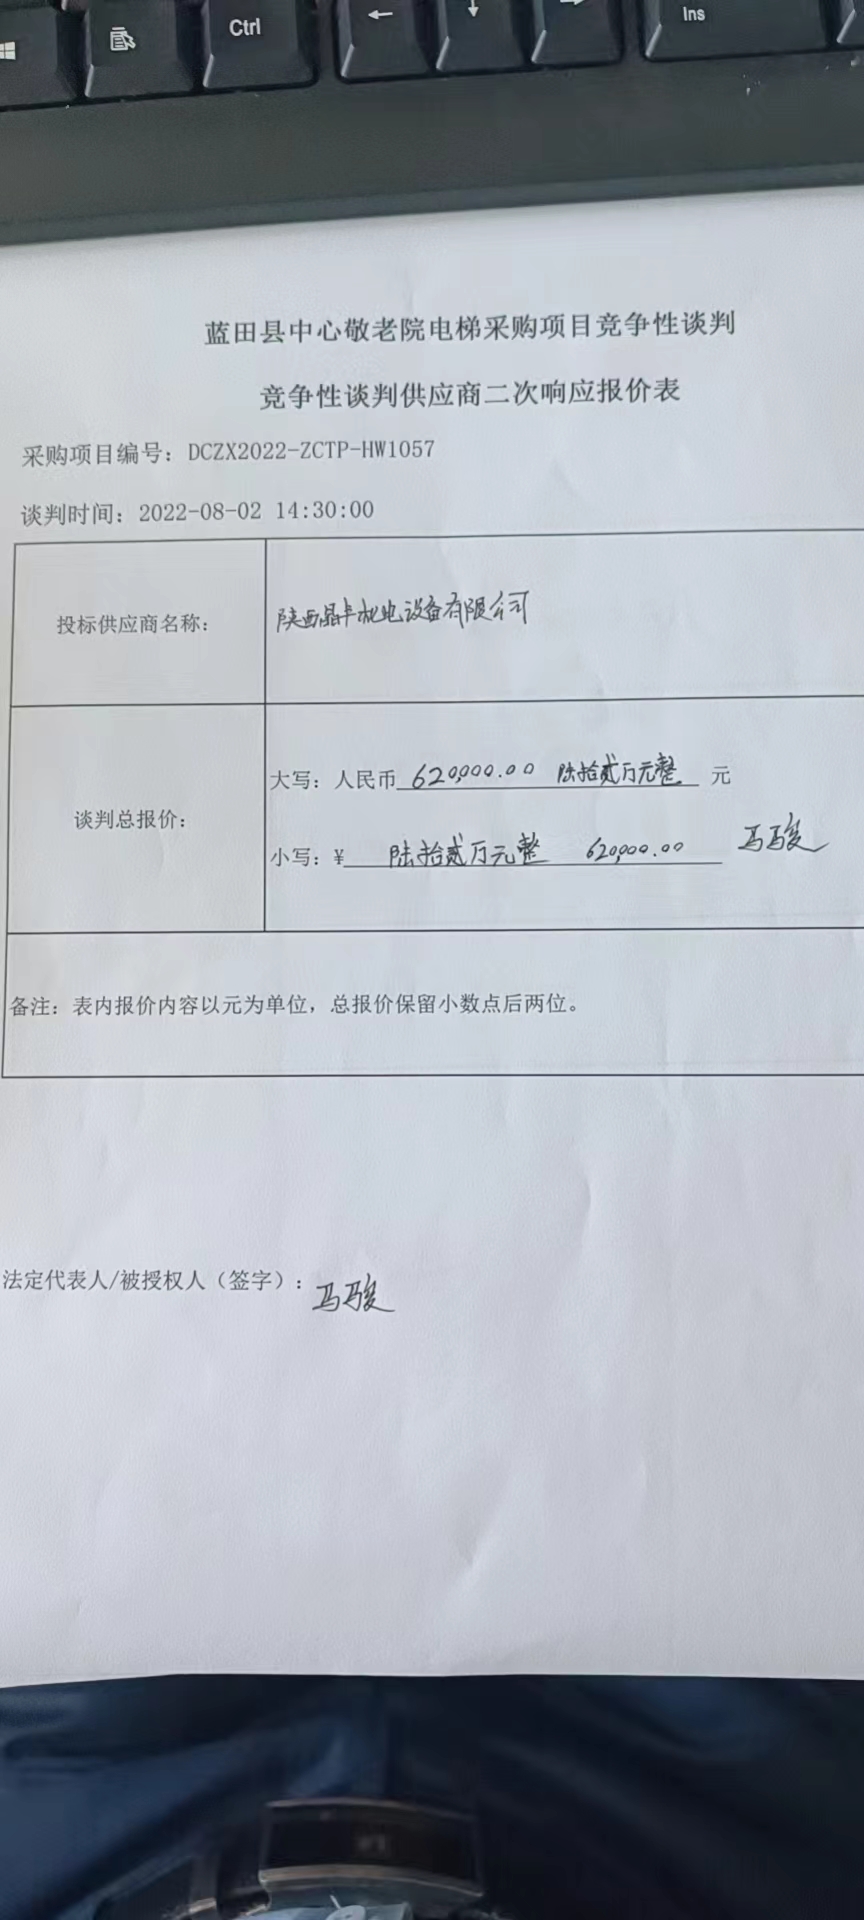 Ctrl
Ins
蓝田县中心敬老院电梯采购项目竞争性谈判
竞争性谈判供应商二次响应报价表
采购项目编号：DCZX2022-ZCTP-HW1057
谈判时间：2022-08-02 14:30:00
投标供应商名称：
陕西晶丰机电设备有限公司
谈判总报价：
大写：人民币 620,000.00 陆拾贰万元整 元
小写：¥ 陆拾贰万元整 620,000.00 马骏
备注：表内报价内容以元为单位，总报价保留小数点后两位。
法定代表人/被授权人（签字）：马骏